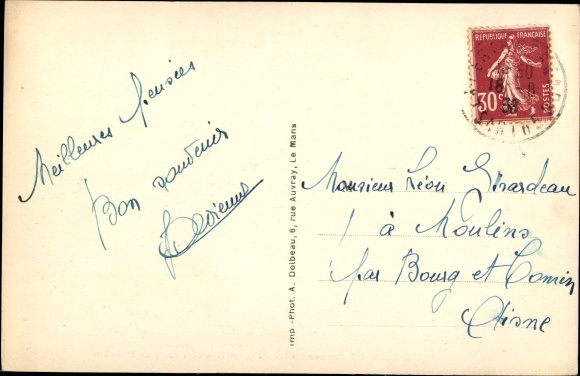 Meilleures Pensées
Bon souvenir
Imp.-Phot. A. Dolbeau, 6, rue Auvray, Le Mans
REPUBLIQUE FRANÇAISE
30c
POSTES
Monsieur Léon Girardeau
à Moulins
Par Bourg et Comin
Aisne